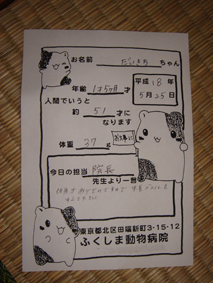 お名前 だいきち ちゃん
平成18年
5月25日
年齢
人間でいうと
約 51 才に
なります
体重 37 g
今日の担当 院長
先生より一言
東京都北区田端新町3-15-12
ふくしま動物病院